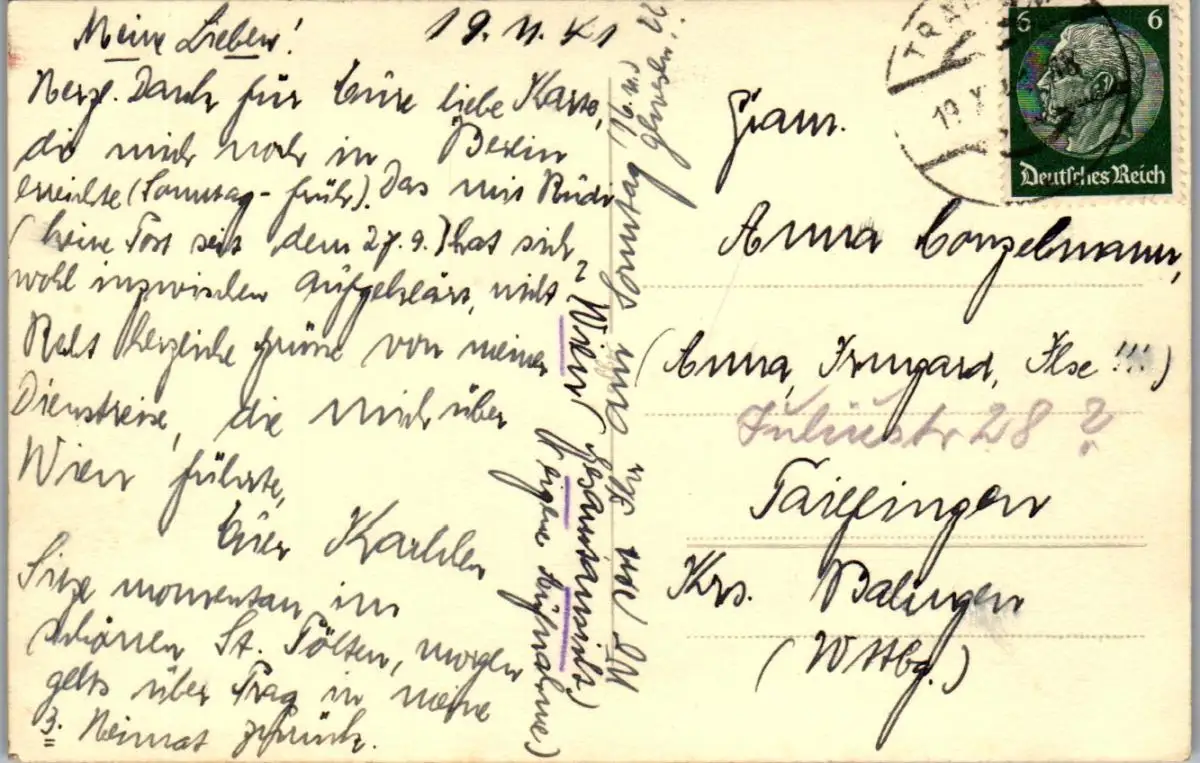 Meine Lieben! 19.11.41
Herzl. Dank für Eure liebe Karte,
die mich noch in Berlin
erreichte (Sonntag-früh). Das mit Rudi
(keine Post seit dem 27.9.) hat sich
wohl inzwischen aufgeklärt, nicht?
Recht herzliche Grüße von meiner
Dienstreise, die mich über
Wien führte,
Euer Karlchen
Sitze momentan im
schönen St. Pölten, morgen
gehts über Prag in meine
3. Heimat zurück.
Wien Gesamtansicht,
(eigene Aufnahme)
Wo seid Ihr am Sonntag, 16.11.
gewesen?
Fam.
Anna Conzelmann,
(Anna, Irmgard, Ilse!!!)
Juliustr 28?
Tailfingen
Krs. Balingen
(Wttbg.)
6 6
Deutsches Reich